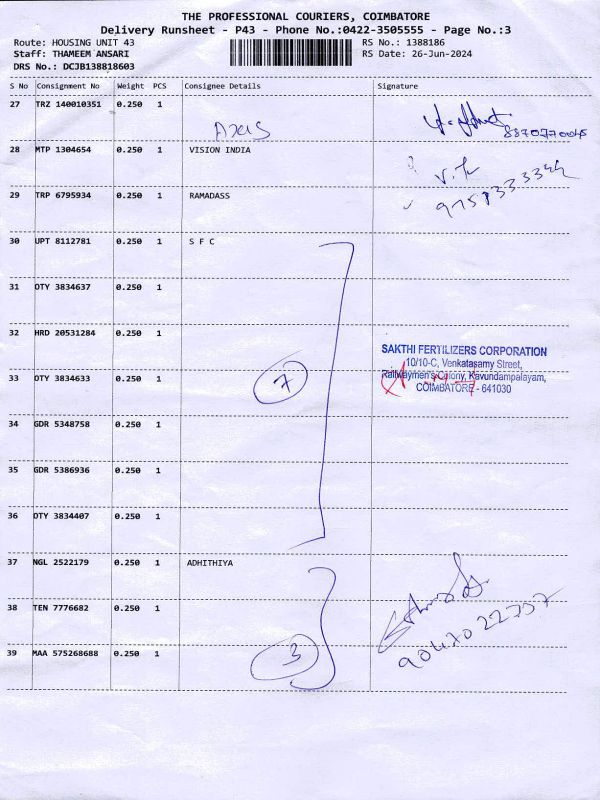 THE PROFESSIONAL COURIERS, COIMBATORE
Delivery Runsheet - P43 - Phone No.:0422-3505555 - Page No.:3
Route: HOUSING UNIT 43 RS No.: 1388186
Staff: THAMEEM ANSARI RS Date: 26-Jun-2024
DRS No.: DCJB138818603
S No Consignment No Weight PCS Consignee Details Signature
27 TRZ 140010351 0.250 1
AXIS
8870770045
28 MTP 1304654 0.250 1 VISION INDIA
29 TRP 6795934 0.250 1 RAMADASS
30 UPT 8112781 0.250 1 S F C
31 OTY 3834637 0.250 1
32 HRD 20531284 0.250 1
SAKTHI FERTILIZERS CORPORATION
10/10-C, Venkatasamy Street,
33 OTY 3834633 0.250 1 7 Railwaymen's Colony, Kavundampalayam,
COIMBATORE - 641030
34 GDR 5348758 0.250 1
35 GDR 5386936 0.250 1
36 OTY 3834407 0.250 1
37 NGL 2522179 0.250 1 ADHITHIYA
38 TEN 7776682 0.250 1
39 MAA 575268688 0.250 1 3